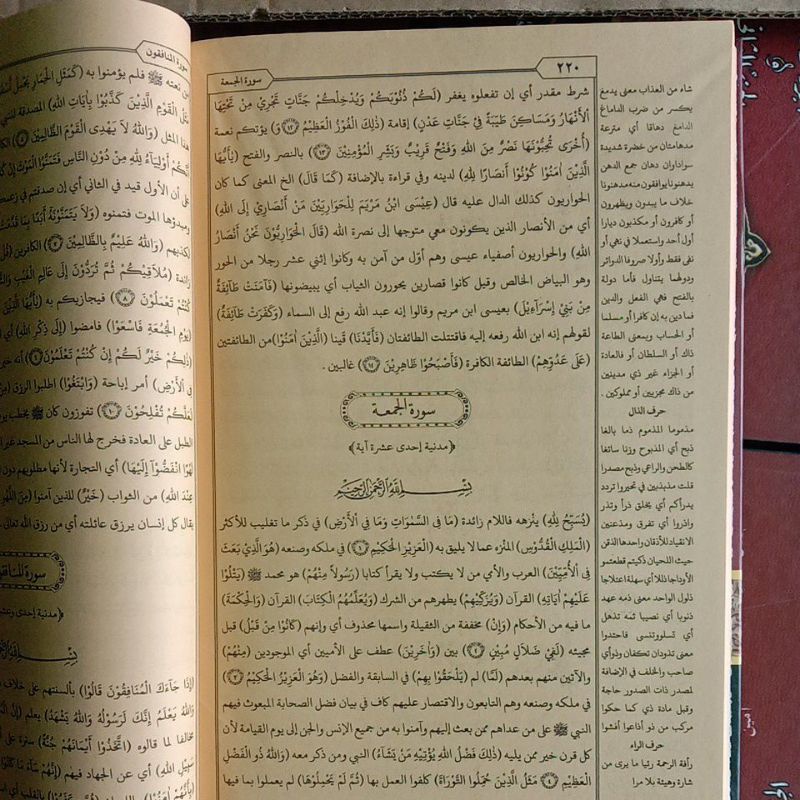 ٢٢٠
سورة الجمعة
شرط مقدر أي إن تفعلوه يغفر (لَكُمْ ذُنُوبَكُمْ وَيُدْخِلْكُمْ جَنَّاتٍ تَجْرِي مِنْ تَحْتِهَا
الْأَنْهَارُ وَمَسَاكِنَ طَيِّبَةً فِي جَنَّاتِ عَدْنٍ) إقامة (ذَلِكَ الْفَوْزُ الْعَظِيمُ ١٢) (وَ) يؤتكم نعمة
(أُخْرَى تُحِبُّونَهَا نَصْرٌ مِنَ اللهِ وَفَتْحٌ قَرِيبٌ وَبَشِّرِ الْمُؤْمِنِينَ ١٣) بالنصر والفتح (يَأَيُّهَا
الَّذِينَ اٰمَنُوا كُونُوْا أَنْصَارًا لِلهِ) لدينه وفي قراءة بالإضافة (كَمَا قَالَ) الخ المعنى كما كان
الحواريون كذلك الدال عليه قال (عِيسَى ابْنُ مَرْيَمَ لِلْحَوَارِيِّينَ مَنْ أَنْصَارِي إِلَى اللهِ)
أي من الأنصار الذين يكونون معي متوجها إلى نصرة الله (قَالَ الْحَوَارِيُّونَ نَحْنُ أَنْصَارُ
اللهِ) والحواريون أصفياء عيسى وهم أوّل من آمن به وكانوا إثني عشر رجلا من الحور
وهو البياض الخالص وقيل كانوا قصارين يحورون الثياب أي يبيضونها (فَآمَنَتْ طَائِفَةٌ
مِنْ بَنِي إِسْرَآءِيلَ) بعيسى ابن مريم وقالوا إنه عبد الله رفع إلى السماء (وَكَفَرَتْ طَائِفَةٌ)
لقولهم إنه ابن الله رفعه إليه فاقتتلت الطائفتان (فَأَيَّدْنَا) قينا (الَّذِينَ اٰمَنُوْا) من الطائفتين
(عَلَى عَدُوِّهِمْ) الطائفة الكافرة (فَأَصْبَحُوْا ظَاهِرِينَ ١٤) غالبين .
سورة الجمعة
﴿مدنية إحدى عشرة آية﴾
بِسْمِ اللهِ الرَّحْمٰنِ الرَّحِيْمِ
(يُسَبِّحُ لِلهِ) ينزهه فاللام زائدة (مَا فِي السَّمٰوَاتِ وَمَا فِي الْأَرْضِ) في ذكر ما تغليب للأكثر
(الْمَلِكِ الْقُدُّوْسِ) المنزه عما لا يليق به (الْعَزِيزِ الْحَكِيْمِ ١) في ملكه وصنعه (هُوَ الَّذِيْ بَعَثَ
فِي الْأُمِّيِّيْنَ) العرب والأمي من لا يكتب ولا يقرأ كتابا (رَسُولًا مِنْهُمْ) هو محمد ﷺ (يَتْلُوْا
عَلَيْهِمْ اٰيَاتِهِ) القرآن (وَيُزَكِّيْهِمْ) يطهرهم من الشرك (وَيُعَلِّمُهُمُ الْكِتَابَ) القرآن (وَالْحِكْمَةَ)
ما فيه من الأحكام (وَإِنْ) مخففة من الثقيلة واسمها محذوف أي وإنهم (كَانُوْا مِنْ قَبْلُ) قبل
مجيئه (لَفِيْ ضَلَالٍ مُبِيْنٍ ٢) بين (وَآخَرِيْنَ) عطف على الأميين أي الموجودين (مِنْهُمْ)
والآتين منهم بعدهم (لَمَّا) لم (يَلْحَقُوْا بِهِمْ) في السابقة والفضل (وَهُوَ الْعَزِيْزُ الْحَكِيْمُ ٣)
في ملكه وصنعه وهم التابعون والاقتصار عليهم كاف في بيان فضل الصحابة المبعوث فيهم
النبي ﷺ على من عداهم ممن بعث إليهم وآمنوا به من جميع الإنس والجن إلى يوم القيامة لأن
كل قرن خير ممن يليه (ذٰلِكَ فَضْلُ اللهِ يُؤْتِيْهِ مَنْ يَشَآءُ) النبي ومن ذكر معه (وَاللهُ ذُو الْفَضْلِ
الْعَظِيْمِ ٤ مَثَلُ الَّذِيْنَ حُمِّلُوا التَّوْرَاةَ) كلفوا العمل بها (ثُمَّ لَمْ يَحْمِلُوْهَا) لم يعملوا بما فيها
شاء من العذاب معنى يدمغ
يكسر من ضرب الدماغ
الدامغ دهاقا أي مترعة
مدهامتان من خضرة شديدة
سوادا وان دهان جمع الدهن
خلاف ما يبدون ويظهرون
أو كافرون أو مكذبون ديارا
بالفتح فهي الفعل والدين
أو الحساب وبمعنى الطاعة
ذاك أو السلطان أو فالعادة
أو الجزاء غير ذي مدينين
من ذاك مجزيين أو مملوكين .
حرف الذال
مذموما المذموم ذما بالغا
ذبح أي المذبوح وزنا سائغا
كالطحن والراعي وذبح مصدرا
قلت مذبذبين في تحيروا تردد
يدرأكم أي يخلق ذرأ وتذر
ذلول الواحد معنى ذمه عهد
ذنوبا أي نصيبا ثمه تذهل
معنى تذودان تكفان وذو أي
صاحب والخلف في الإضافة
لمصدر ذات الصدور حاجة
وقبل مادة ذي كما حكوا
مركب من ذو أذاعوا أفشوا
حرف الراء
رأفة الرحمة رئيا ما يرى من
شارة وهيئة بلا مرا
سورة المنافقون
من نعته ﷺ فلم يؤمنوا به (كَمَثَلِ الْحِمَارِ يَحْمِلُ
الْقَوْمِ الَّذِيْنَ كَذَّبُوْا بِآيَاتِ اللهِ) المصدقة للنبي
هذا المثل (وَاللهُ لَا يَهْدِى الْقَوْمَ الظَّالِمِيْنَ
أَنَّكُمْ أَوْلِيَآءُ لِلهِ مِنْ دُوْنِ النَّاسِ فَتَمَنَّوُا الْمَوْتَ إِنْ
على أن الأول قيد في الثاني أي إن صدقتم في زعمكم
ومبدؤها الموت فتمنوه (وَلَا يَتَمَنَّوْنَهُ أَبَدًا بِمَا قَدَّمَتْ
(وَاللهُ عَلِيْمٌ بِالظَّالِمِيْنَ ٧) الكافرين (قُلْ
زائدة (مُلَاقِيْكُمْ ثُمَّ تُرَدُّوْنَ إِلَى عَالِمِ الْغَيْبِ
كُنْتُمْ تَعْمَلُوْنَ ٨) فيجازيكم به (يَأَيُّهَا الَّذِيْنَ
يَوْمِ الْجُمُعَةِ فَاسْعَوْا) فامضوا (إِلَى ذِكْرِ اللهِ)
ذٰلِكُمْ خَيْرٌ لَكُمْ إِنْ كُنْتُمْ تَعْلَمُوْنَ ٩) أنه خير
فِي الْأَرْضِ) أمر إباحة (وَابْتَغُوْا) اطلبوا الرزق
لَعَلَّكُمْ تُفْلِحُوْنَ ١٠) تفوزون كان ﷺ يخطب
الطبل على العادة فخرج لها الناس من المسجد غير
لَهْوًا انْفَضُّوْا إِلَيْهَا) أي التجارة لأنها مطلوبهم دون
عِنْدَ اللهِ) من الثواب (خَيْرٌ) للذين آمنوا (مِنَ اللَّهْوِ
يقال كل إنسان يرزق عائلته أي من رزق الله تعالى
سورة المنافقون
مدنية إحدى عشرة
(إِذَا جَآءَكَ الْمُنَافِقُوْنَ قَالُوْا) بألسنتهم على خلاف
وَاللهُ يَعْلَمُ إِنَّكَ لَرَسُوْلُهُ وَاللهُ يَشْهَدُ) يعلم (إِنَّ
مخالفا لما قالوه (اتَّخَذُوْا أَيْمَانَهُمْ جُنَّةً) سترة على
سَبِيْلِ اللهِ) أي عن الجهاد فيهم (إِنَّهُمْ سَآءَ مَا كَانُوْا